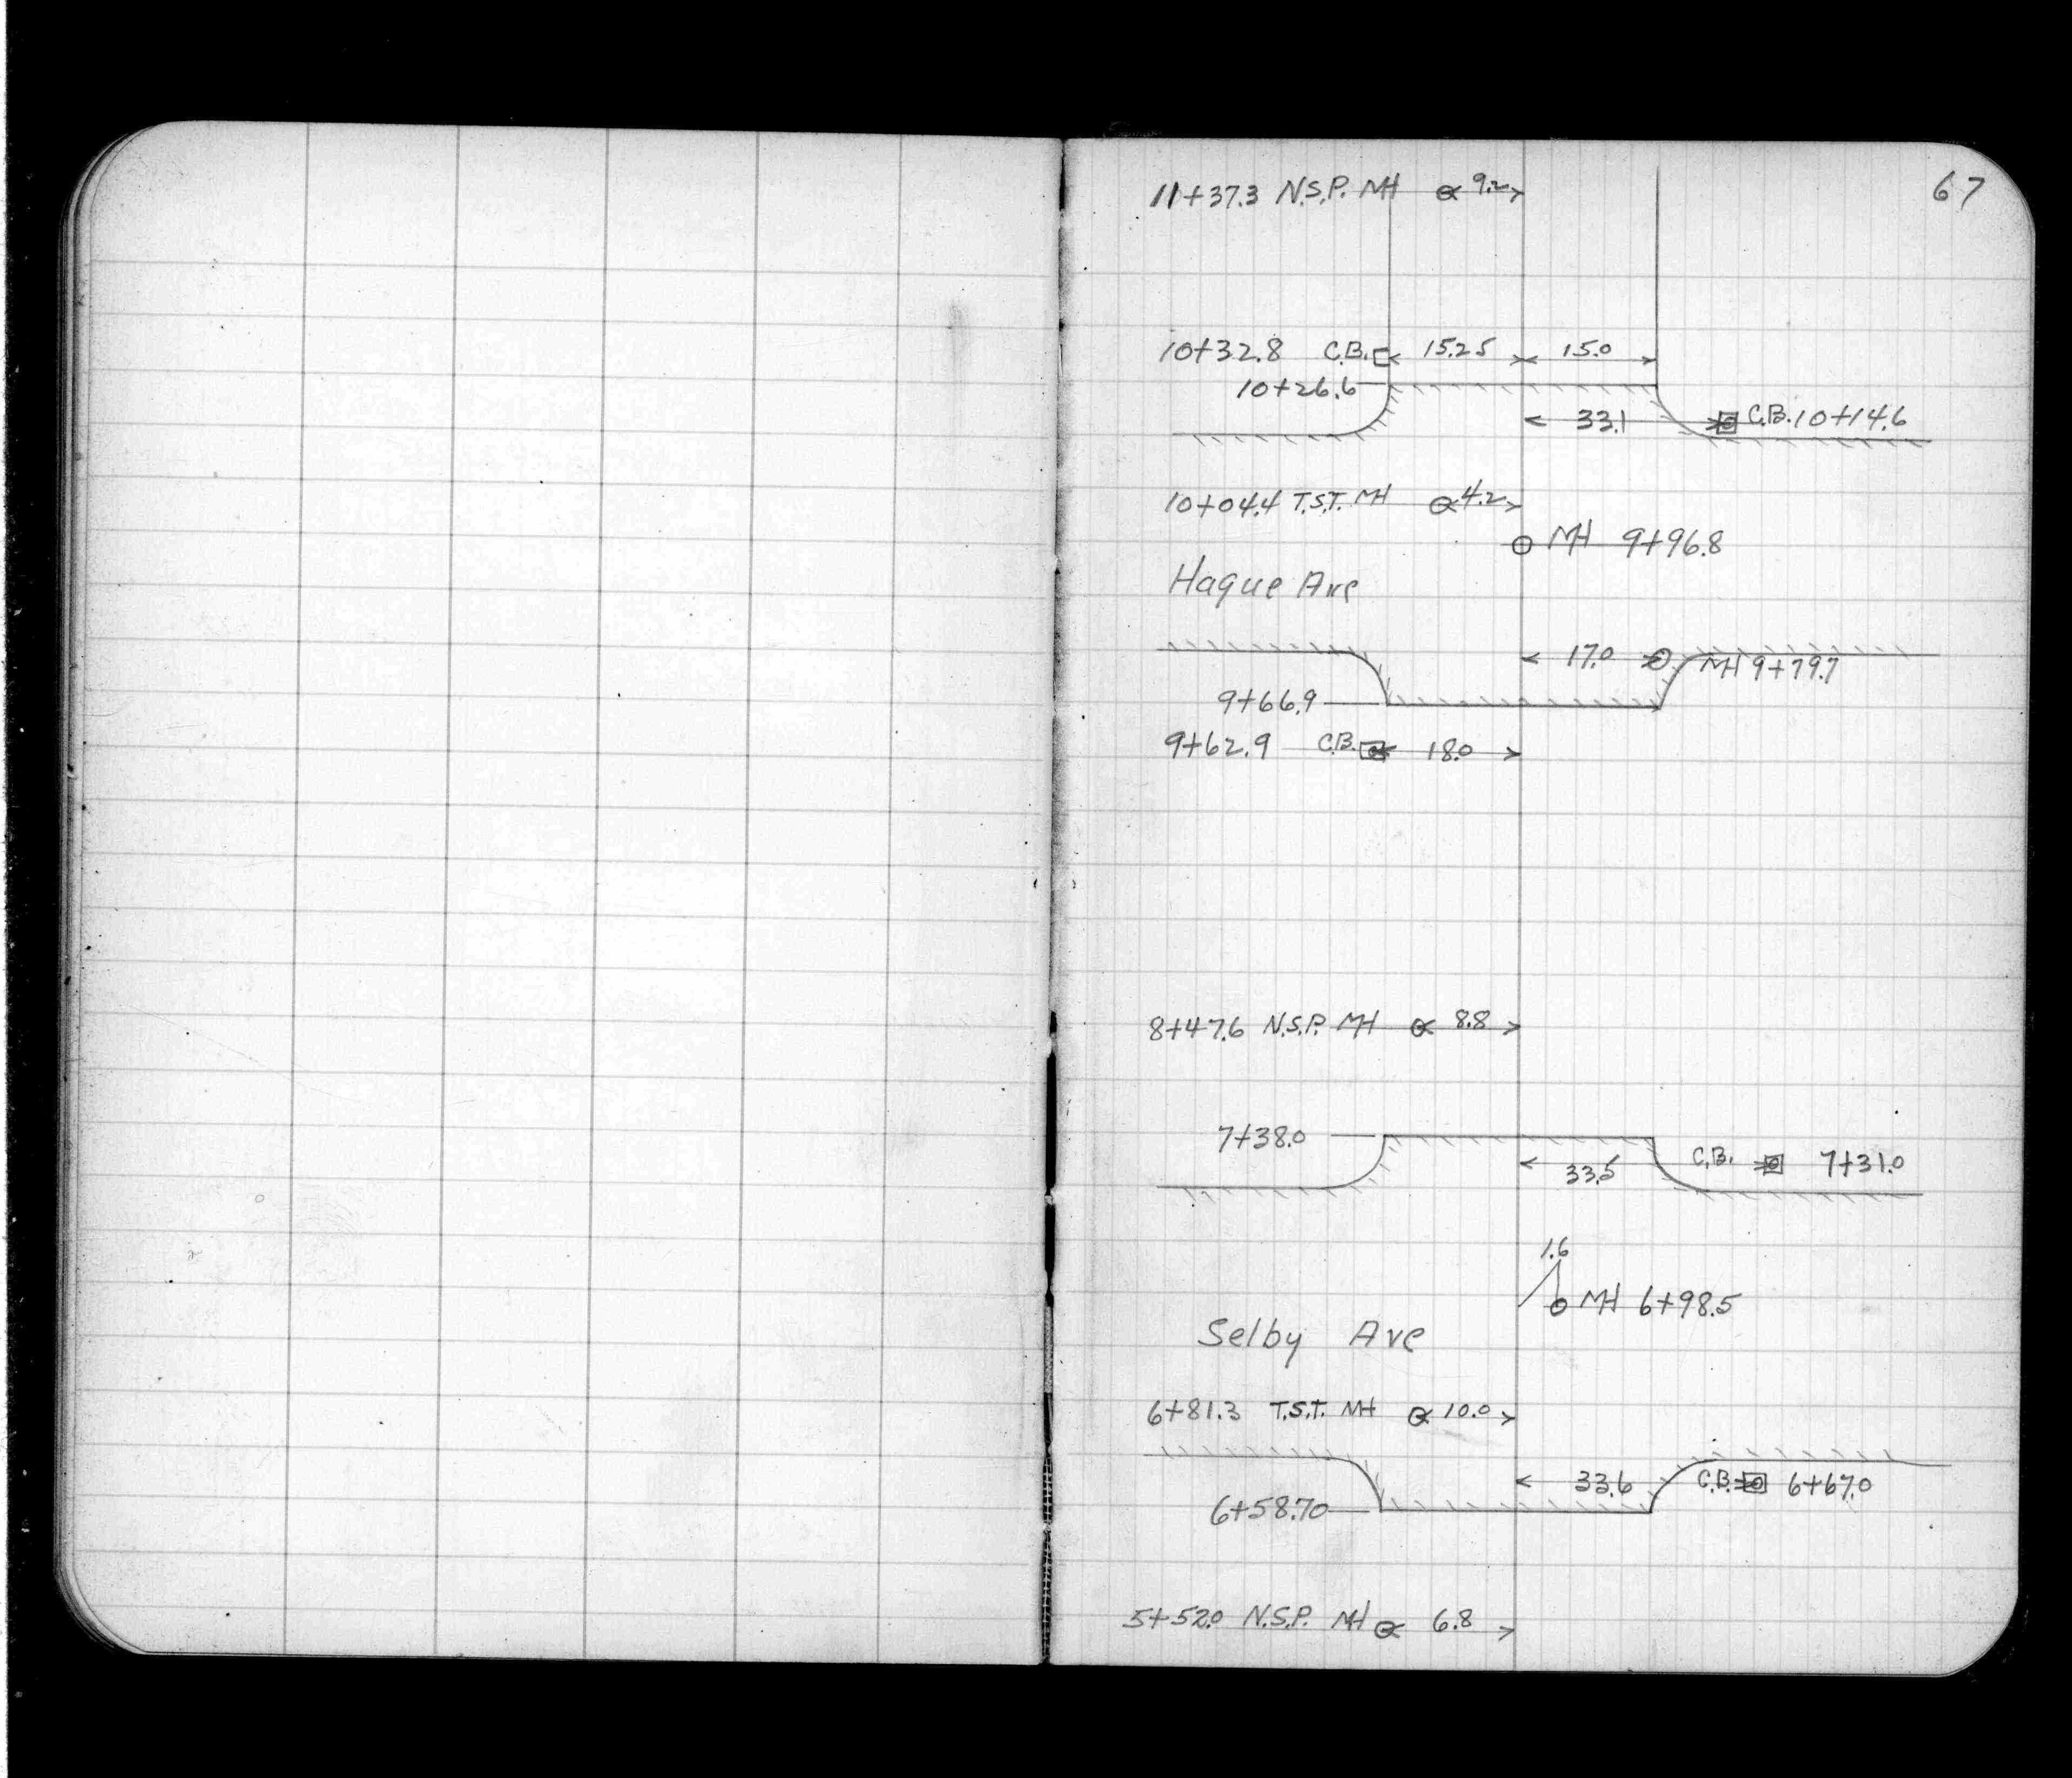 67
11+37.3 N.S.P. MH 9.2
10+32.8 C.B. 15.25 15.0
10+26.6
33.1 C.B. 10+14.6
10+04.4 T.S.T. MH 4.2
MH 9+96.8
Hague Ave
17.0 MH 9+79.7
9+66.9
9+62.9 C.B. 18.0
8+47.6 N.S.P. MH 8.8
7+38.0
33.5 C.B. 7+31.0
1.6
MH 6+98.5
Selby Ave
6+81.3 T.S.T. MH 10.0
33.6 C.B. 6+67.0
6+58.70
5+52.0 N.S.P. MH 6.8